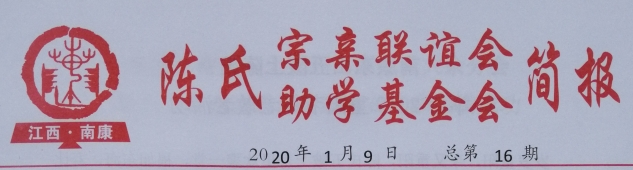 陈氏宗亲联谊会助学基金会简报
江西·南康
2020年1月9日 总第16期